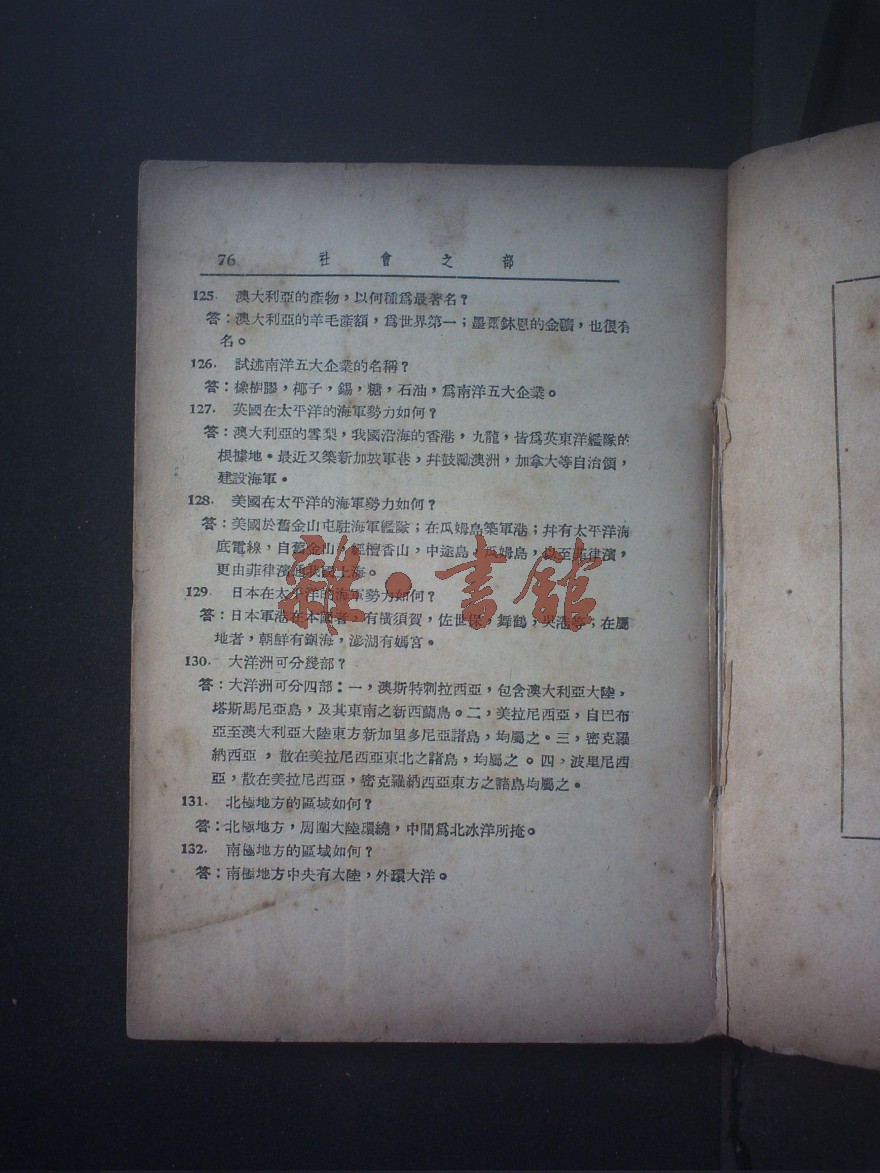 76 社會之部
125. 澳大利亞的產物，以何種爲最著名？
答：澳大利亞的羊毛產額，爲世界第一；墨爾鉢恩的金礦，也很有
名。
126. 試述南洋五大企業的名稱？
答：橡樹膠，椰子，錫，糖，石油，爲南洋五大企業。
127. 英國在太平洋的海軍勢力如何？
答：澳大利亞的雪梨，我國沿海的香港，九龍，皆爲英東洋艦隊的
根據地。最近又築新加坡軍港，幷鼓勵澳洲，加拿大等自治領，
建設海軍。
128. 美國在太平洋的海軍勢力如何？
答：美國於舊金山屯駐海軍艦隊；在瓜姆島築軍港；幷有太平洋海
底電線，自舊金山，經檀香山，中途島，瓜姆島，以至菲律濱，
更由菲律濱通我國上海。
129. 日本在太平洋的海軍勢力如何？
答：日本軍港在本國者，有橫須賀，佐世保，舞鶴，吳港等；在屬
地者，朝鮮有鎭海，澎湖有媽宮。
130. 大洋洲可分幾部？
答：大洋洲可分四部：一，澳斯特剌拉西亞，包含澳大利亞大陸，
塔斯馬尼亞島，及其東南之新西蘭島。二，美拉尼西亞，自巴布
亞至澳大利亞大陸東方新加里多尼亞諸島，均屬之。三，密克羅
納西亞，散在美拉尼西亞東北之諸島，均屬之。四，波里尼西
亞，散在美拉尼西亞，密克羅納西亞東方之諸島均屬之。
131. 北極地方的區域如何？
答：北極地方，周圍大陸環繞，中間爲北冰洋所掩。
132. 南極地方的區域如何？
答：南極地方中央有大陸，外環大洋。
雜·書館